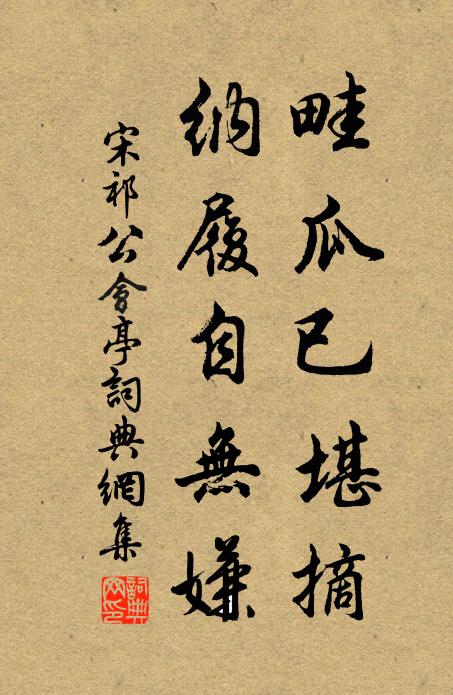 畦瓜已堪摘
納履自無嫌
宋祁公會亭詞典網集
詞典网印